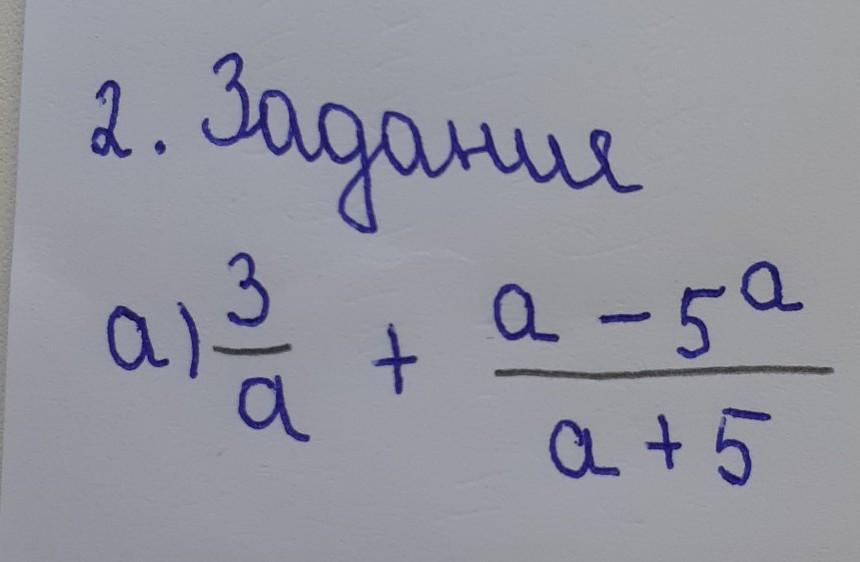 2. Задания
а) 3/a + (a - 5^a)/(a + 5)